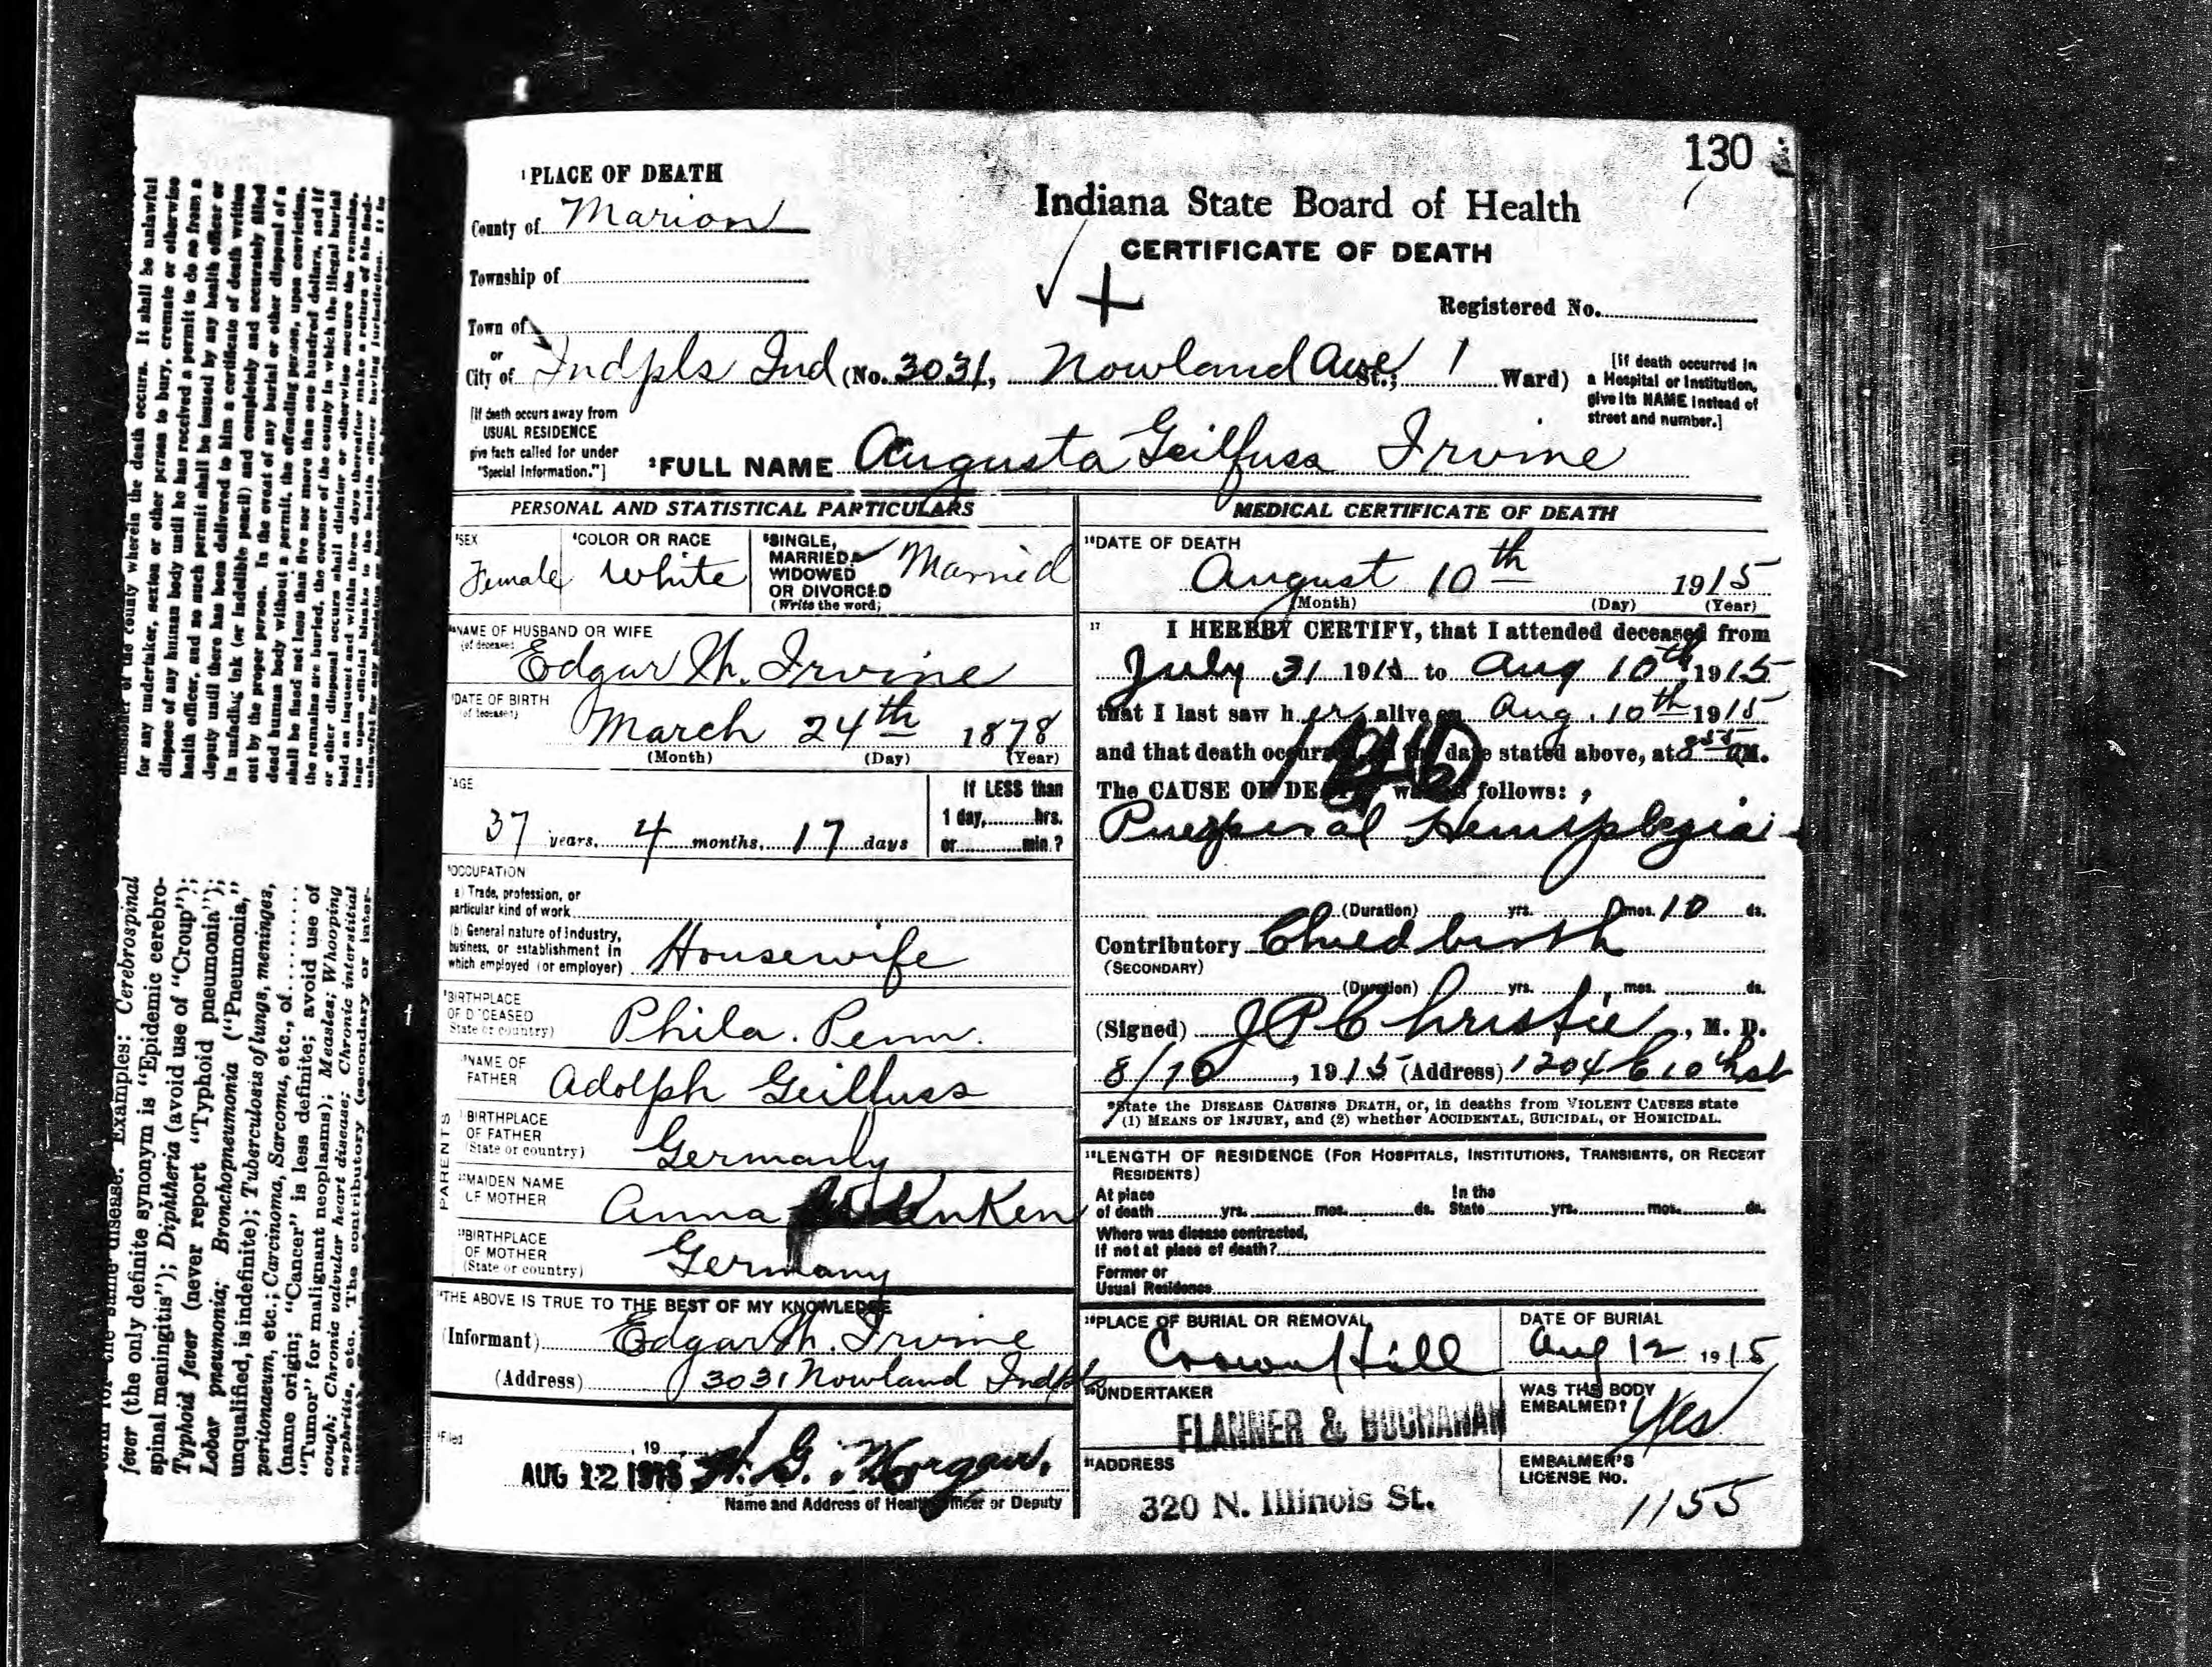 130
1 PLACE OF DEATH
County of Marion
Indiana State Board of Health
CERTIFICATE OF DEATH
Township of
Registered No.
Town of
or
City of Indpls Ind (No. 3031, Nowland Ave St.; 1 Ward)
[If death occurred in
a Hospital or Institution,
give its NAME instead of
street and number.]
[If death occurs away from
USUAL RESIDENCE
give facts called for under
"Special Information."]
2 FULL NAME Augusta Geilfuss Irvine
PERSONAL AND STATISTICAL PARTICULARS
3 SEX
Female
4 COLOR OR RACE
White
5 SINGLE,
MARRIED,
WIDOWED
OR DIVORCED
(Write the word)
Married
NAME OF HUSBAND OR WIFE
(of deceased)
Edgar M. Irvine
DATE OF BIRTH
(of deceased)
March 24th 1878
(Month) (Day) (Year)
AGE
37 years, 4 months, 17 days
If LESS than
1 day, hrs.
or min.?
OCCUPATION
a) Trade, profession, or
particular kind of work
(b) General nature of industry,
business, or establishment in
which employed (or employer) Housewife
BIRTHPLACE
OF DECEASED
State or country)
Phila. Penn.
NAME OF
FATHER
Adolph Geilfuss
PARENTS
BIRTHPLACE
OF FATHER
(State or country)
Germany
MAIDEN NAME
OF MOTHER
Anna
BIRTHPLACE
OF MOTHER
(State or country)
Germany
THE ABOVE IS TRUE TO THE BEST OF MY KNOWLEDGE
(Informant) Edgar M. Irvine
(Address) 3031 Nowland Indpls
Filed
, 19
AUG 12 1915 H. G. Morgan.
Name and Address of Health Officer or Deputy
MEDICAL CERTIFICATE OF DEATH
16 DATE OF DEATH
August 10th 1915
(Month) (Day) (Year)
17 I HEREBY CERTIFY, that I attended deceased from
July 31 1915 to Aug 10th 1915
that I last saw her alive on Aug. 10th 1915
and that death occurred date stated above, at 8 55 AM.
The CAUSE OF DEATH was as follows:
Puerperal Hemiplegia
(Duration) yrs. mos. 10 ds.
Contributory Childbirth
(SECONDARY)
(Duration) yrs. mos. ds.
(Signed) J P Christie, M. D.
8/10, 1915 (Address) 1204 E 10th st
*State the DISEASE CAUSING DEATH, or, in deaths from VIOLENT CAUSES state
(1) MEANS OF INJURY, and (2) whether ACCIDENTAL, SUICIDAL, or HOMICIDAL.
18 LENGTH OF RESIDENCE (FOR HOSPITALS, INSTITUTIONS, TRANSIENTS, OR RECENT
RESIDENTS)
At place In the
of death yrs. mos. ds. State yrs. mos. ds.
Where was disease contracted,
If not at place of death?
Former or
Usual Residence
19 PLACE OF BURIAL OR REMOVAL
Crown Hill
DATE OF BURIAL
Aug 12 1915
20 UNDERTAKER
FLANNER & BUCHANAN
WAS THE BODY
EMBALMED? Yes
21 ADDRESS
320 N. Illinois St.
EMBALMER'S
LICENSE No.
1155
of the county wherein the death occurs. It shall be unlawful
for any undertaker, sexton or other person to bury, cremate or otherwise
dispose of any human body until he has received a permit to do so from a
health officer, and no such permit shall be issued by any health officer or
deputy until there has been delivered to him a certificate of death written
in unfading ink (or indelible pencil) and completely and accurately filled
out by the proper person. In the event of any burial or other disposal of a
dead human body without a permit, the offending person, upon conviction,
shall be fined not less than five nor more than one hundred dollars, and if
the remains are buried, the coroner of the county in which the illegal burial
or other disposal occurs shall disinter or otherwise secure the remains,
hold an inquest and within three days thereafter make a return of his find-
ings upon official blanks to the health officer having jurisdiction. It is
disease. Examples: Cerebrospinal
fever (the only definite synonym is "Epidemic cerebro-
spinal meningitis"); Diphtheria (avoid use of "Croup");
Typhoid fever (never report "Typhoid pneumonia");
Lobar pneumonia; Bronchopneumonia ("Pneumonia,"
unqualified, is indefinite); Tuberculosis of lungs, meninges,
peritonaeum, etc.; Carcinoma, Sarcoma, etc., of
(name origin; "Cancer" is less definite; avoid use of
"Tumor" for malignant neoplasms); Measles; Whooping
cough; Chronic valvular heart disease; Chronic interstitial
nephritis, etc. The contributory (secondary or inter-